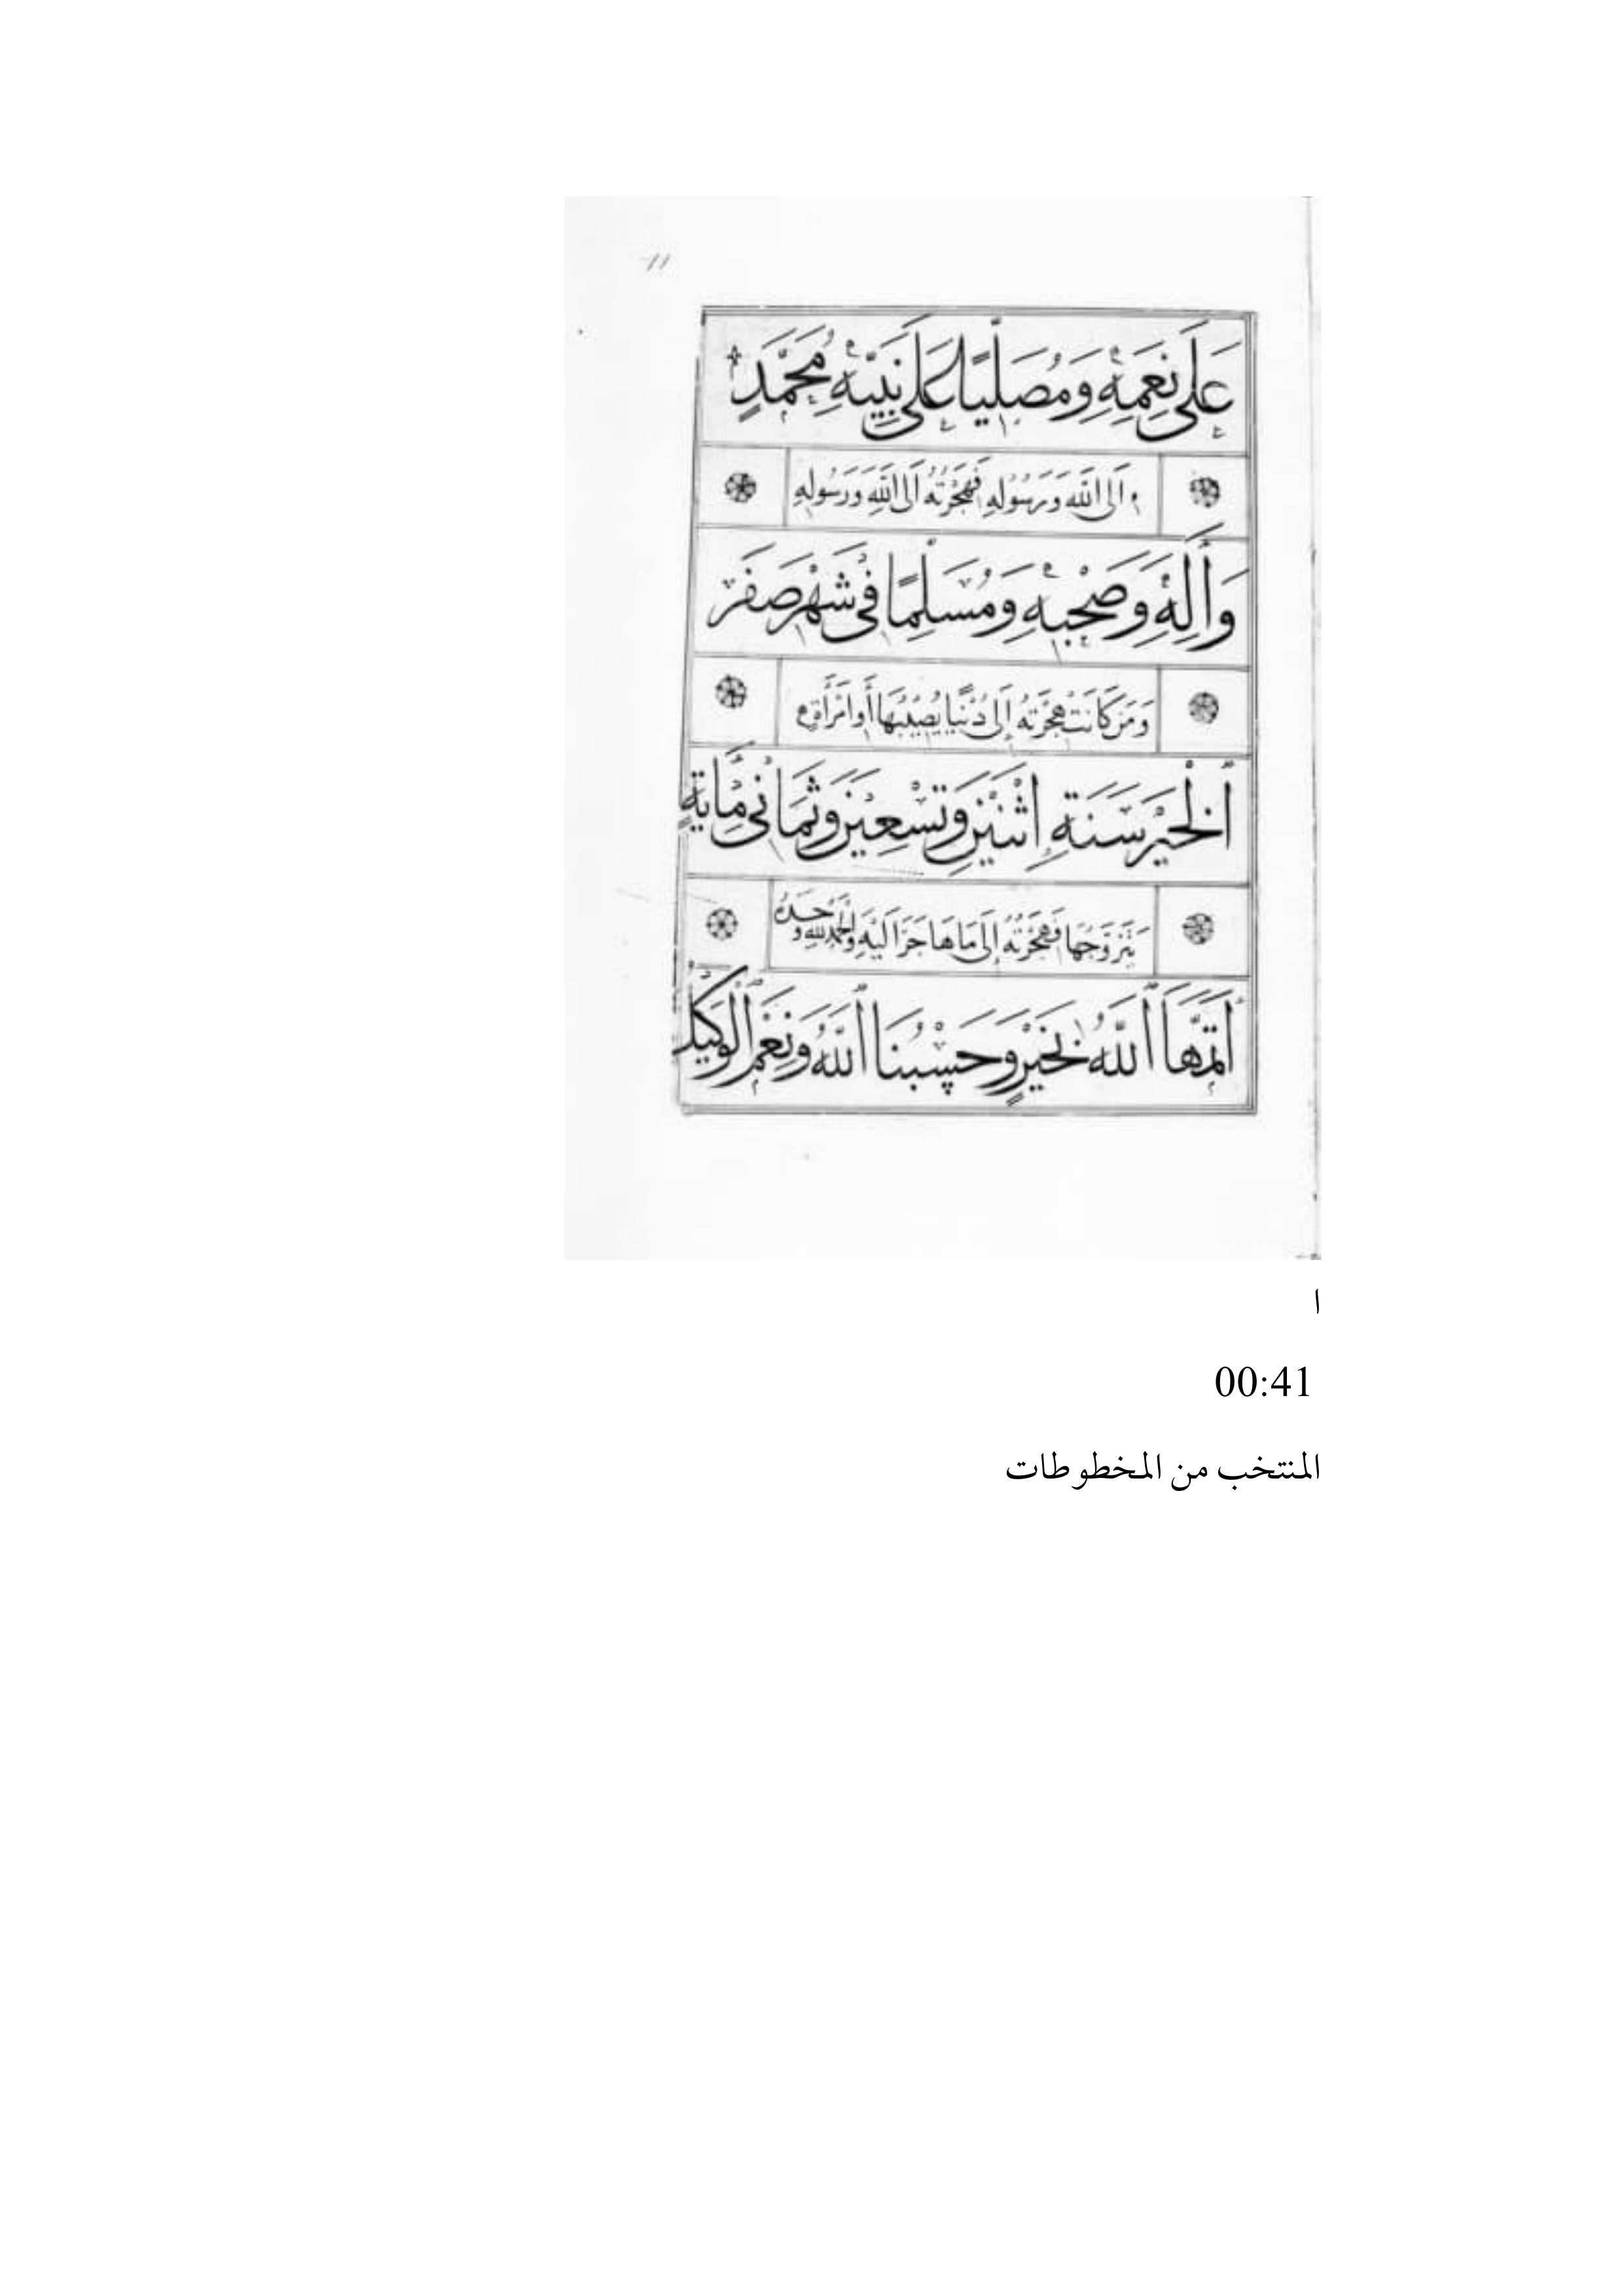 ١١
عَلَى نِعَمِهِ وَمُصَلِّيًا عَلَى نَبِيِّهِ مُحَمَّدٍ
إلَى اللَّهِ وَرَسُولِهِ فَهِجْرَتُهُ إلَى اللَّهِ وَرَسُولِهِ
وَآلِهِ وَصَحْبِهِ وَمُسَلِّمًا فِى شَهْرِ صَفَرَ
وَمَنْ كَانَتْ هِجْرَتُهُ إِلَى دُنْيَا يُصِيْبُهَا أَوِ امْرَأَةٍ
الْخَيْرِ سَنَةِ إِثْنَيْنِ وَتِسْعِيْنَ وَثَمَانِى مِايَةٍ
يَتَزَوَّجُهَا فَهِجْرَتُهُ إِلَى مَا هَاجَرَ إلَيْهِ وَالْحَمْدُ لِلَّهِ وَحْدَهُ
أَتَمَّهَا اللَّهُ بِخَيْرٍ وَحَسْبُنَا اللَّهُ وَنِعْمَ الْوَكِيْلُ
ا
00:41
المنتخب من المخطوطات